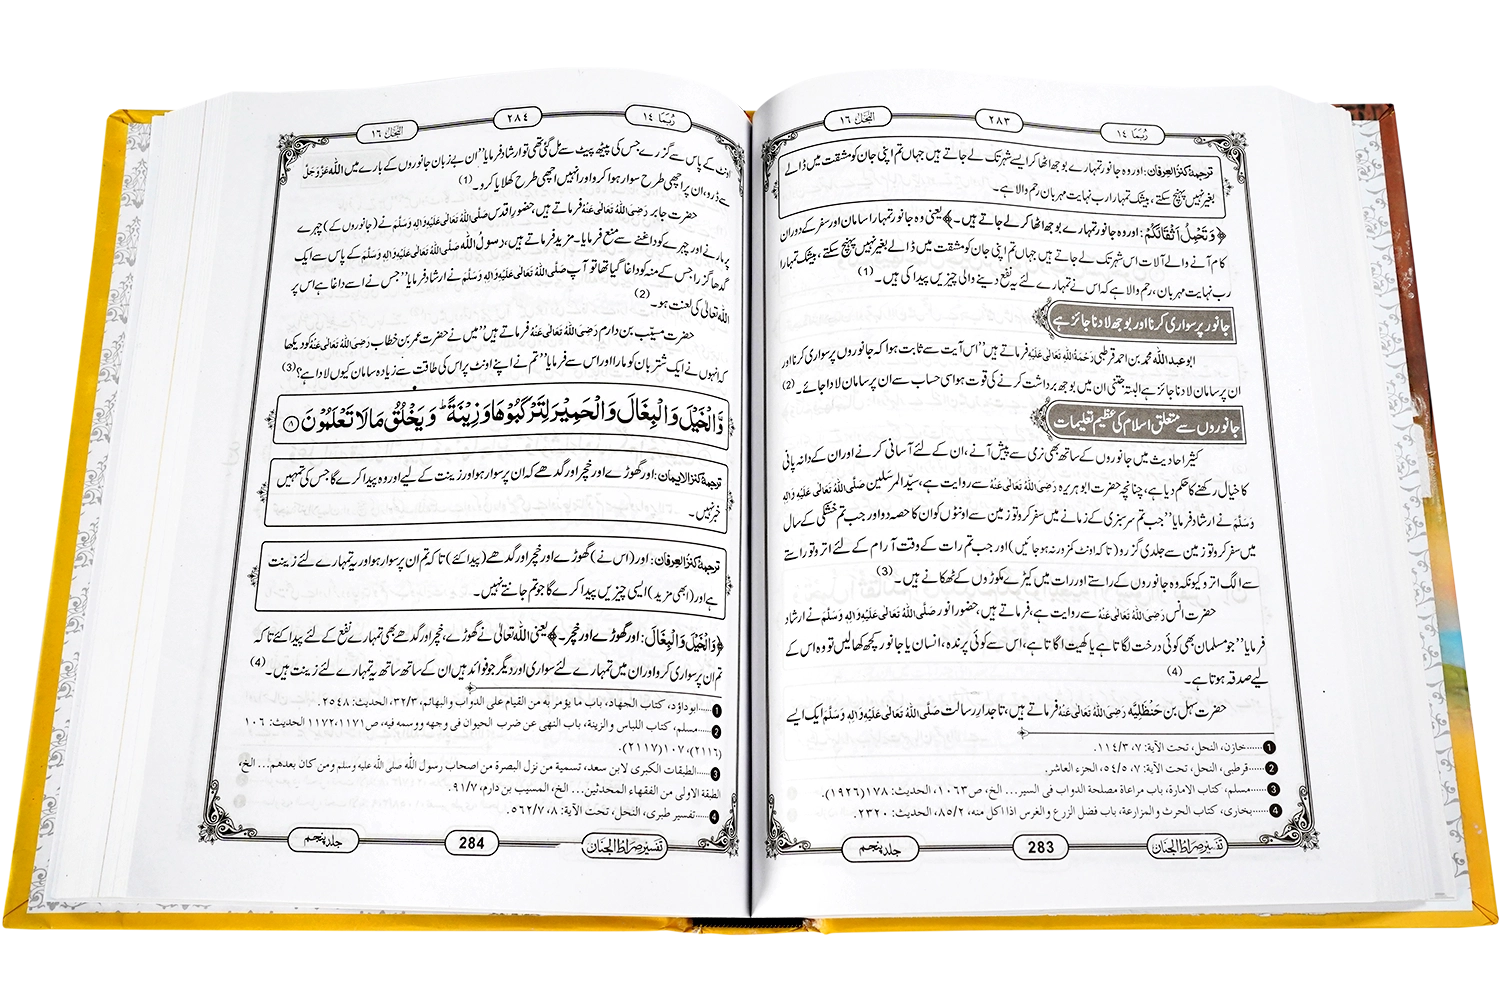 النحل ١٦
٢٨٣
ربما ١٤
ترجمۂ کنزُالعِرفان: اور وہ جانور تمہارے بوجھ اٹھا کر ایسے شہر تک لے جاتے ہیں جہاں تم اپنی جان کو مشقت میں ڈالے
بغیر نہیں پہنچ سکتے، بیشک تمہارا رب نہایت مہربان رحم والا ہے۔
﴿وَ تَحْمِلُ اَثْقَالَكُمْ: اور وہ جانور تمہارے بوجھ اٹھا کر لے جاتے ہیں۔﴾ یعنی وہ جانور تمہارا سامان اور سفر کے دوران
کام آنے والے آلات اس شہر تک لے جاتے ہیں جہاں تم اپنی جان کو مشقت میں ڈالے بغیر نہیں پہنچ سکتے، بیشک تمہارا
رب نہایت مہربان، رحم والا ہے کہ اس نے تمہارے لئے یہ نفع دینے والی چیزیں پیدا کی ہیں۔ (1)
جانور پر سواری کرنا اور بوجھ لادنا جائز ہے
ابو عبد اللہ محمد بن احمد قرطبی رَحْمَةُاللّٰهِ تَعَالٰى عَلَيْهِ فرماتے ہیں ”اس آیت سے ثابت ہوا کہ جانوروں پر سواری کرنا اور
ان پر سامان لادنا جائز ہے البتہ جتنی ان میں بوجھ برداشت کرنے کی قوت ہو اسی حساب سے ان پر سامان لادا جائے۔ (2)
جانوروں سے متعلق اسلام کی عظیم تعلیمات
کثیر احادیث میں جانوروں کے ساتھ بھی نرمی سے پیش آنے، ان کے لئے آسانی کرنے اور ان کے دانہ پانی
کا خیال رکھنے کا حکم دیا ہے، چنانچہ حضرت ابوہریرہ رَضِىَ اللّٰهُ تَعَالٰى عَنْهُ سے روایت ہے، سیّد المرسَلین صَلَّى اللّٰهُ تَعَالٰى عَلَيْهِ وَاٰلِهٖ
وَسَلَّمَ نے ارشاد فرمایا ”جب تم سرسبزی کے زمانے میں سفر کرو تو زمین سے اونٹوں کو ان کا حصہ دو اور جب تم خشکی کے سال
میں سفر کرو تو زمین سے جلدی گزرو (تاکہ اونٹ کمزور نہ ہو جائیں) اور جب تم رات کے وقت آرام کے لئے اترو تو راستے
سے الگ اترو کیونکہ وہ جانوروں کے راستے اور رات میں کیڑے مکوڑوں کے ٹھکانے ہیں۔ (3)
حضرت انس رَضِىَ اللّٰهُ تَعَالٰى عَنْهُ سے روایت ہے، فرماتے ہیں، حضور انور صَلَّى اللّٰهُ تَعَالٰى عَلَيْهِ وَاٰلِهٖ وَسَلَّمَ نے ارشاد
فرمایا ”جو مسلمان بھی کوئی درخت لگاتا ہے یا کھیت اگاتا ہے، اس سے کوئی پرندہ، انسان یا جانور کچھ کھا لیں تو وہ اس کے
لیے صدقہ ہوتا ہے۔ (4)
حضرت سہل بن حَنظَلِيَّہ رَضِىَ اللّٰهُ تَعَالٰى عَنْهُ فرماتے ہیں، تاجدارِ رسالت صَلَّى اللّٰهُ تَعَالٰى عَلَيْهِ وَاٰلِهٖ وَسَلَّمَ ایک ایسے
1 ......خازن، النحل، تحت الآیة: ۷، ۳/۱۱۴.
2 ......قرطبی، النحل، تحت الآیة: ۷، ۵/۵۴، الجزء العاشر.
3 ......مسلم، کتاب الامارة، باب مراعاة مصلحة الدواب فی السیر... الخ، ص۱۰۶۳، الحدیث: ۱۷۸(۱۹۲۶).
4 ......بخاری، کتاب الحرث و المزارعة، باب فضل الزرع و الغرس اذا اکل منه، ۲/۸۵، الحدیث: ۲۳۲۰.
تفسیر صراط الجنان
283
جلد پنجم
النحل ١٦
٢٨٤
ربما ١٤
اونٹ کے پاس سے گزرے جس کی پیٹھ پیٹ سے مل گئی تھی تو ارشاد فرمایا ”ان بے زبان جانوروں کے بارے میں اللّٰه عَزَّوَجَلَّ
سے ڈرو، ان پر اچھی طرح سوار ہوا کرو اور انہیں اچھی طرح کھلایا کرو۔ (1)
حضرت جابر رَضِىَ اللّٰهُ تَعَالٰى عَنْهُ فرماتے ہیں، حضورِ اقدس صَلَّى اللّٰهُ تَعَالٰى عَلَيْهِ وَاٰلِهٖ وَسَلَّمَ نے (جانوروں کے) چہرے
پر مارنے اور چہرے کو داغنے سے منع فرمایا۔ مزید فرماتے ہیں، رسولُ اللّٰه صَلَّى اللّٰهُ تَعَالٰى عَلَيْهِ وَاٰلِهٖ وَسَلَّمَ کے پاس سے ایک
گدھا گزرا جس کے منہ کو داغا گیا تھا تو آپ صَلَّى اللّٰهُ تَعَالٰى عَلَيْهِ وَاٰلِهٖ وَسَلَّمَ نے ارشاد فرمایا ”جس نے اسے داغا ہے اس پر
اللّٰه تعالیٰ کی لعنت ہو۔ (2)
حضرت مسیّب بن دارم رَضِىَ اللّٰهُ تَعَالٰى عَنْهُ فرماتے ہیں ”میں نے حضرت عمر بن خطاب رَضِىَ اللّٰهُ تَعَالٰى عَنْهُ کو دیکھا
کہ انہوں نے ایک شتربان کو مارا اور اس سے فرمایا ”تم نے اپنے اونٹ پر اس کی طاقت سے زیادہ سامان کیوں لادا ہے؟ (3)
وَّ الْخَیْلَ وَ الْبِغَالَ وَ الْحَمِیْرَ لِتَرْكَبُوْهَا وَ زِیْنَةًؕ وَ یَخْلُقُ مَا لَا تَعْلَمُوْنَ ۸
ترجمۂ کنزالایمان: اور گھوڑے اور خچر اور گدھے کہ ان پر سوار ہو اور زینت کے لیے اور وہ پیدا کرے گا جس کی تمہیں
خبر نہیں۔
ترجمۂ کنزُالعِرفان: اور (اس نے) گھوڑے اور خچر اور گدھے (پیدا کئے) تاکہ تم ان پر سوار ہو اور یہ تمہارے لئے زینت
ہے اور (ابھی مزید) ایسی چیزیں پیدا کرے گا جو تم جانتے نہیں۔
﴿وَالْخَيْلَ وَالْبِغَالَ: اور گھوڑے اور خچر۔﴾ یعنی اللّٰه تعالیٰ نے گھوڑے، خچر اور گدھے بھی تمہارے نفع کے لئے پیدا کئے تاکہ
تم ان پر سواری کرو اور ان میں تمہارے لئے سواری اور دیگر جو فوائد ہیں ان کے ساتھ ساتھ یہ تمہارے لئے زینت ہیں۔ (4)
1 ......ابوداؤد، کتاب الجهاد، باب ما یؤمر به من القیام علی الدواب والبهائم، ۳/۳۲، الحدیث: ۲۵۴۸.
2 ......مسلم، کتاب اللباس و الزینة، باب النهی عن ضرب الحیوان فی وجهه ووسمه فیه، ص۱۱۷۱-۱۱۷۲، الحدیث: ۱۰۶
(۲۱۱۶)، ۱۰۷(۲۱۱۷).
3 ......الطبقات الکبری لابن سعد، تسمیة من نزل البصرة من اصحاب رسول اللّٰه صلی اللّٰه علیه وسلم ومن کان بعدهم... الخ،
الطبقة الاولی من الفقهاء المحدثین... الخ، المسیب بن دارم، ۷/۹۱.
4 ......تفسیر طبری، النحل، تحت الآیة: ۸، ۷/۵۶۲.
تفسیر صراط الجنان
284
جلد پنجم